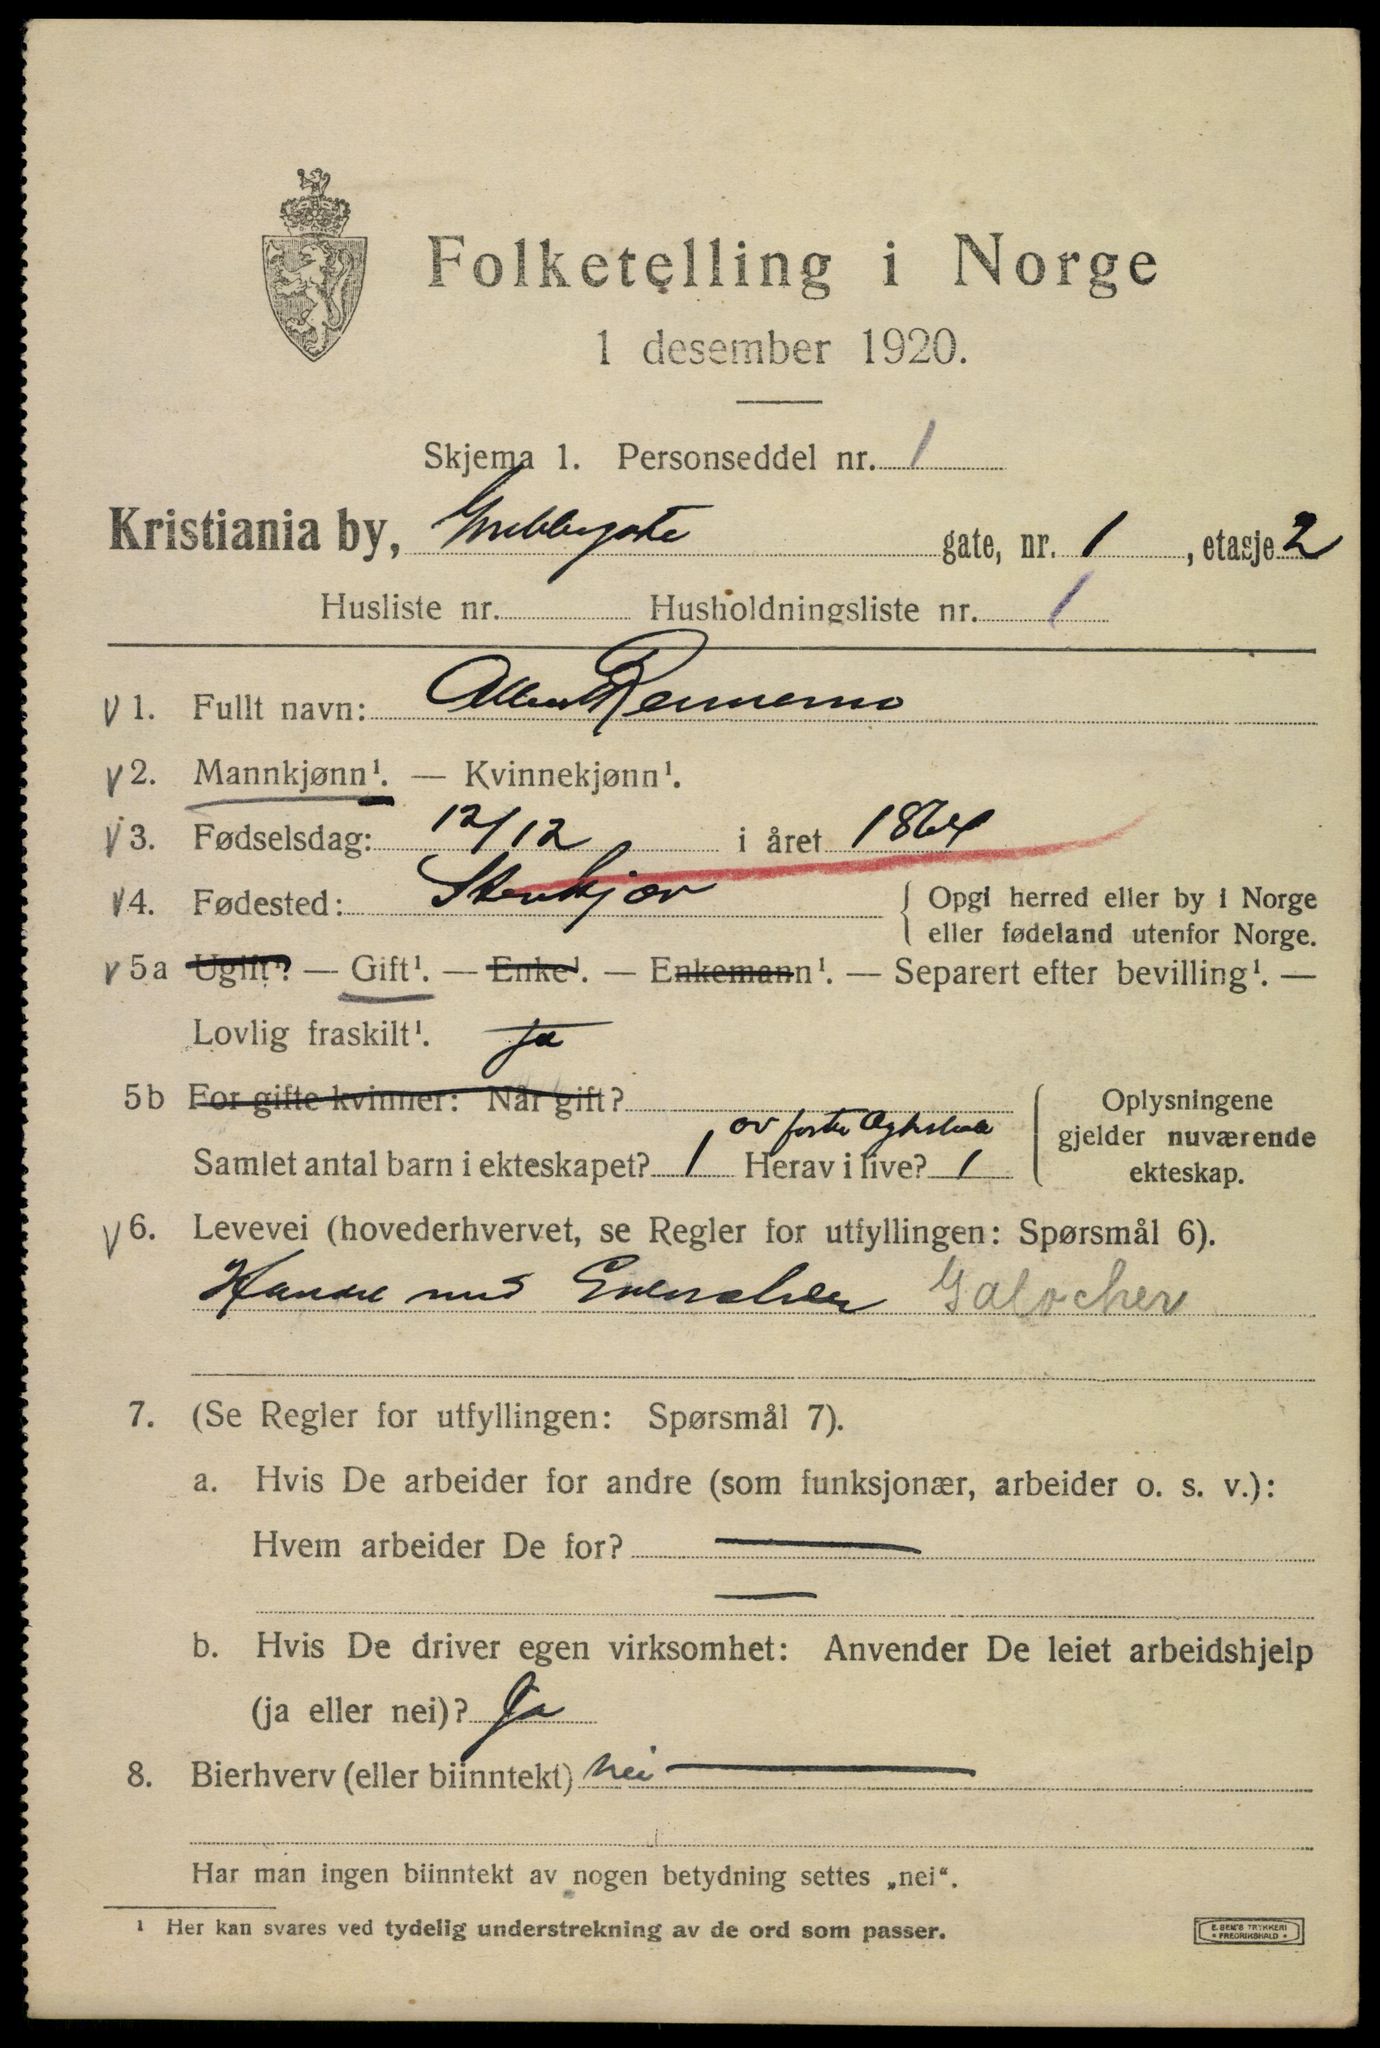 Folketelling i Norge
1 desember 1920.
Skjema 1. Personseddel nr. 1
Kristiania by, Grubbegata gate, nr. 1, etasje 2
Husliste nr. Husholdningsliste nr. 1
V 1. Fullt navn: Albert
V 2. Mannkjønn¹. — Kvinnekjønn¹.
V 3. Fødselsdag: 12/12 i året 1864
V 4. Fødested: Stenkjær { Opgi herred eller by i Norge
eller fødeland utenfor Norge.
V 5a Ugift¹? — Gift¹. — Enke¹. — Enkemann¹. — Separert efter bevilling¹. —
Lovlig fraskilt¹. Ja
5b For gifte kvinner: Når gift?
av første
Samlet antal barn i ekteskapet? 1 Herav i live? 1
Oplysningene
gjelder nuværende
ekteskap.
V 6. Levevei (hovederhvervet, se Regler for utfyllingen: Spørsmål 6).
med Galocher
7. (Se Regler for utfyllingen: Spørsmål 7).
a. Hvis De arbeider for andre (som funksjonær, arbeider o. s. v.):
Hvem arbeider De for? —
—
b. Hvis De driver egen virksomhet: Anvender De leiet arbeidshjelp
(ja eller nei)? Ja
8. Bierhverv (eller biinntekt) nei —
Har man ingen biinntekt av nogen betydning settes „nei“.
¹ Her kan svares ved tydelig understrekning av de ord som passer.
E. SEM'S TRYKKERI
* FREDRIKSHALD *